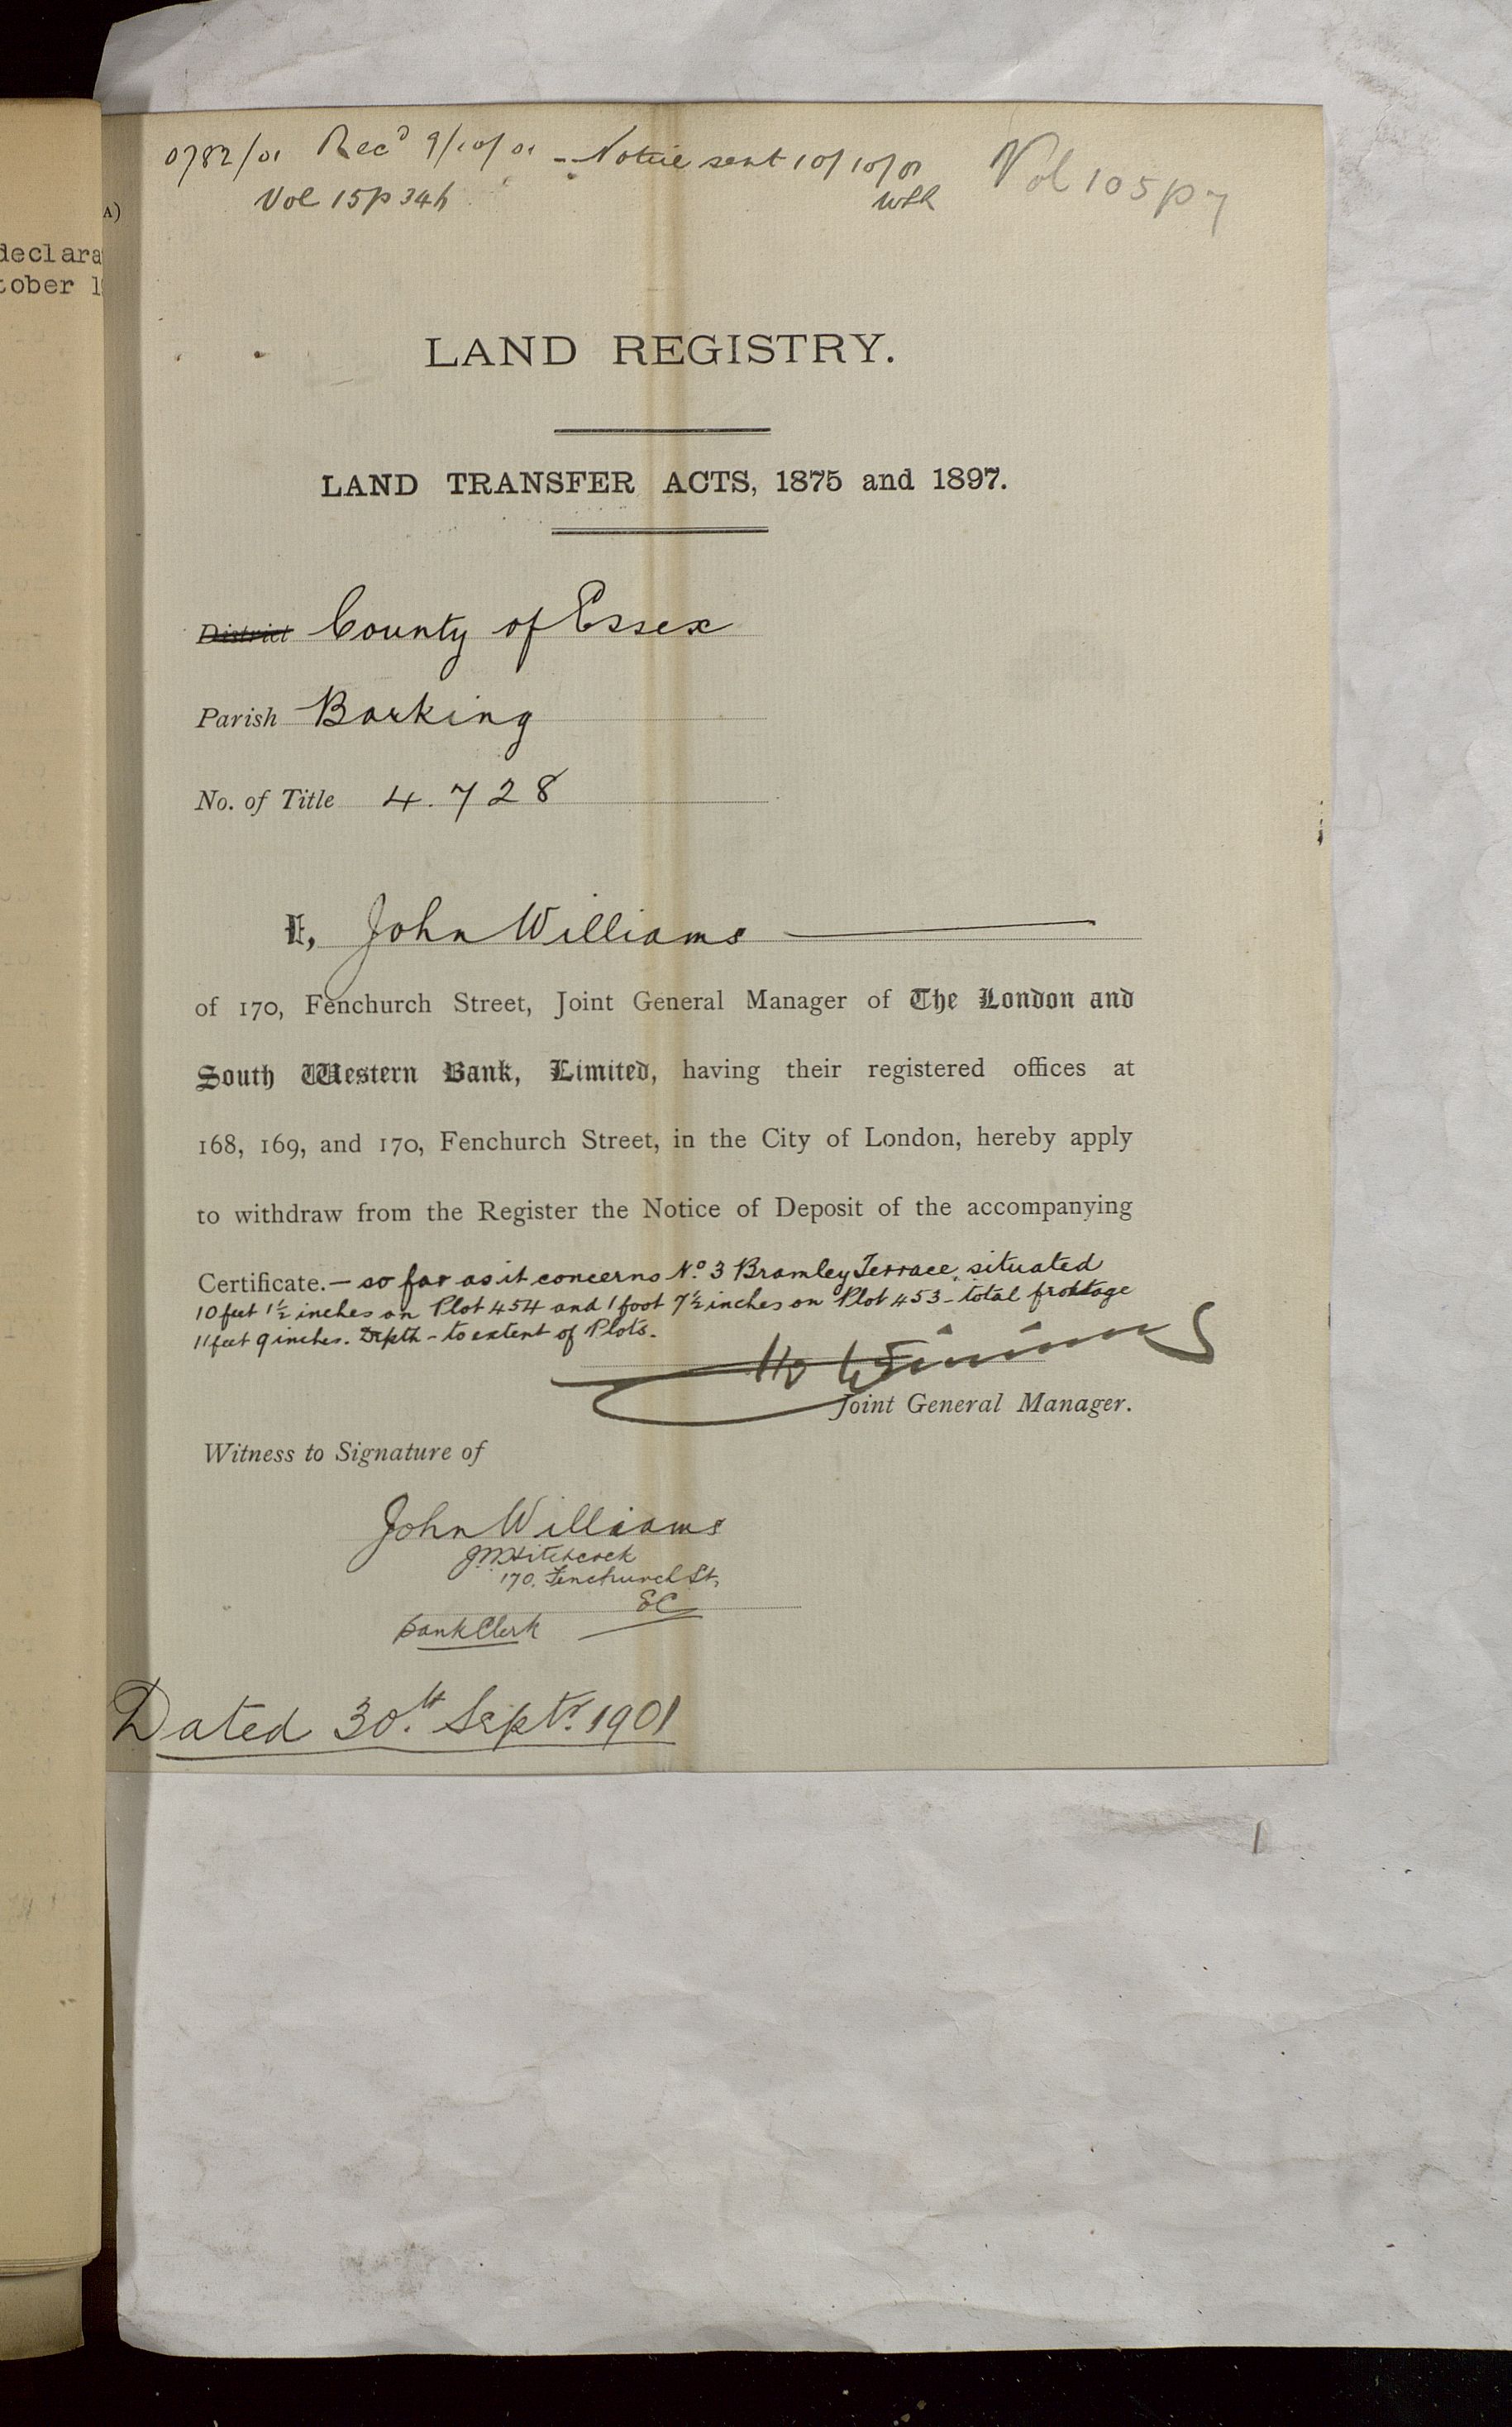 0782/01 Recd 9/10/01 - Notice sent 10/10/01
Vol 105 p 7
Vol 15 p 34h
A)
declara
tober 1
LAND REGISTRY.
LAND TRANSFER ACTS, 1875 and 1897.
District County of Essex
Parish Barking
No. of Title 4.728
I, John Williams
of 170, Fenchurch Street, Joint General Manager of The London and
South Western Bank, Limited, having their registered offices at
168, 169, and 170, Fenchurch Street, in the City of London, hereby apply
to withdraw from the Register the Notice of Deposit of the accompanying
Certificate. — so far as it concerns No. 3 Bramley Terrace, situated
10 feet 1½ inches on Plot 454 and 1 foot 7½ inches on Plot 453 - total frontage
11 feet 9 inches. Depth - to extent of Plots.
Joint General Manager.
Witness to Signature of
John Williams
J.M. Hitchcock
170, Fenchurch St,
EC
Bank Clerk
Dated 30th Septr. 1901